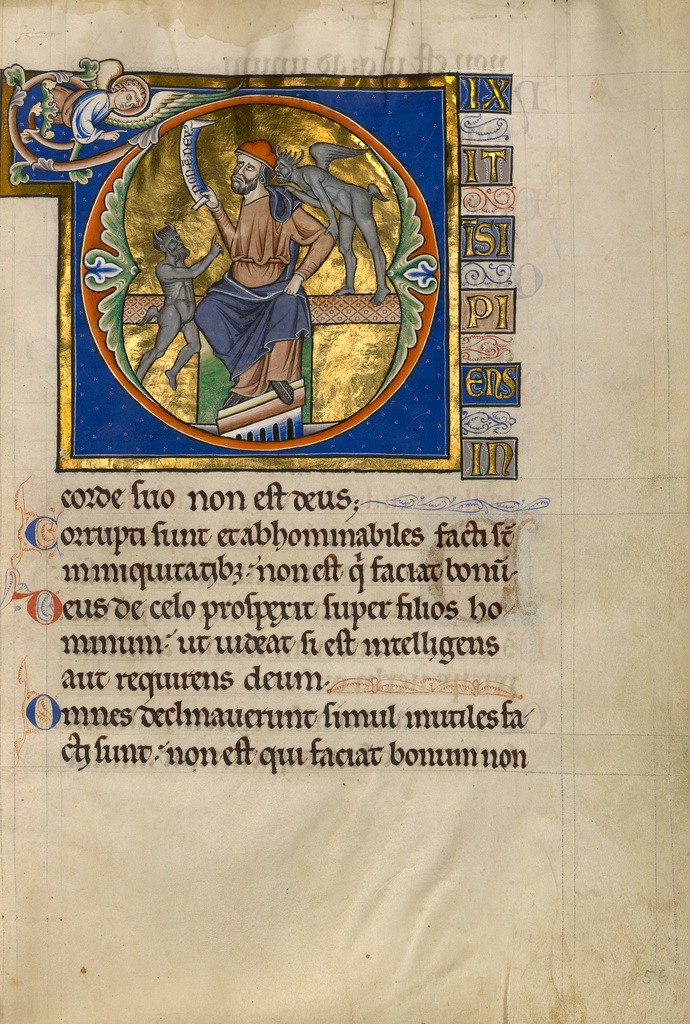 NON E DEUS
IX
IT
ISI
PI
ENS
IN
corde suo non est deus;
Corrupti sunt et abhominabiles facti st̄
in iniquitatibꝫ: non est q̄ faciat bonū.
Deus de celo prospexit super filios ho
minum: ut uideat si est intelligens
aut requirens deum.
Omnes declinauerunt simul inutiles fa
cti sunt: non est qui faciat bonum non
56